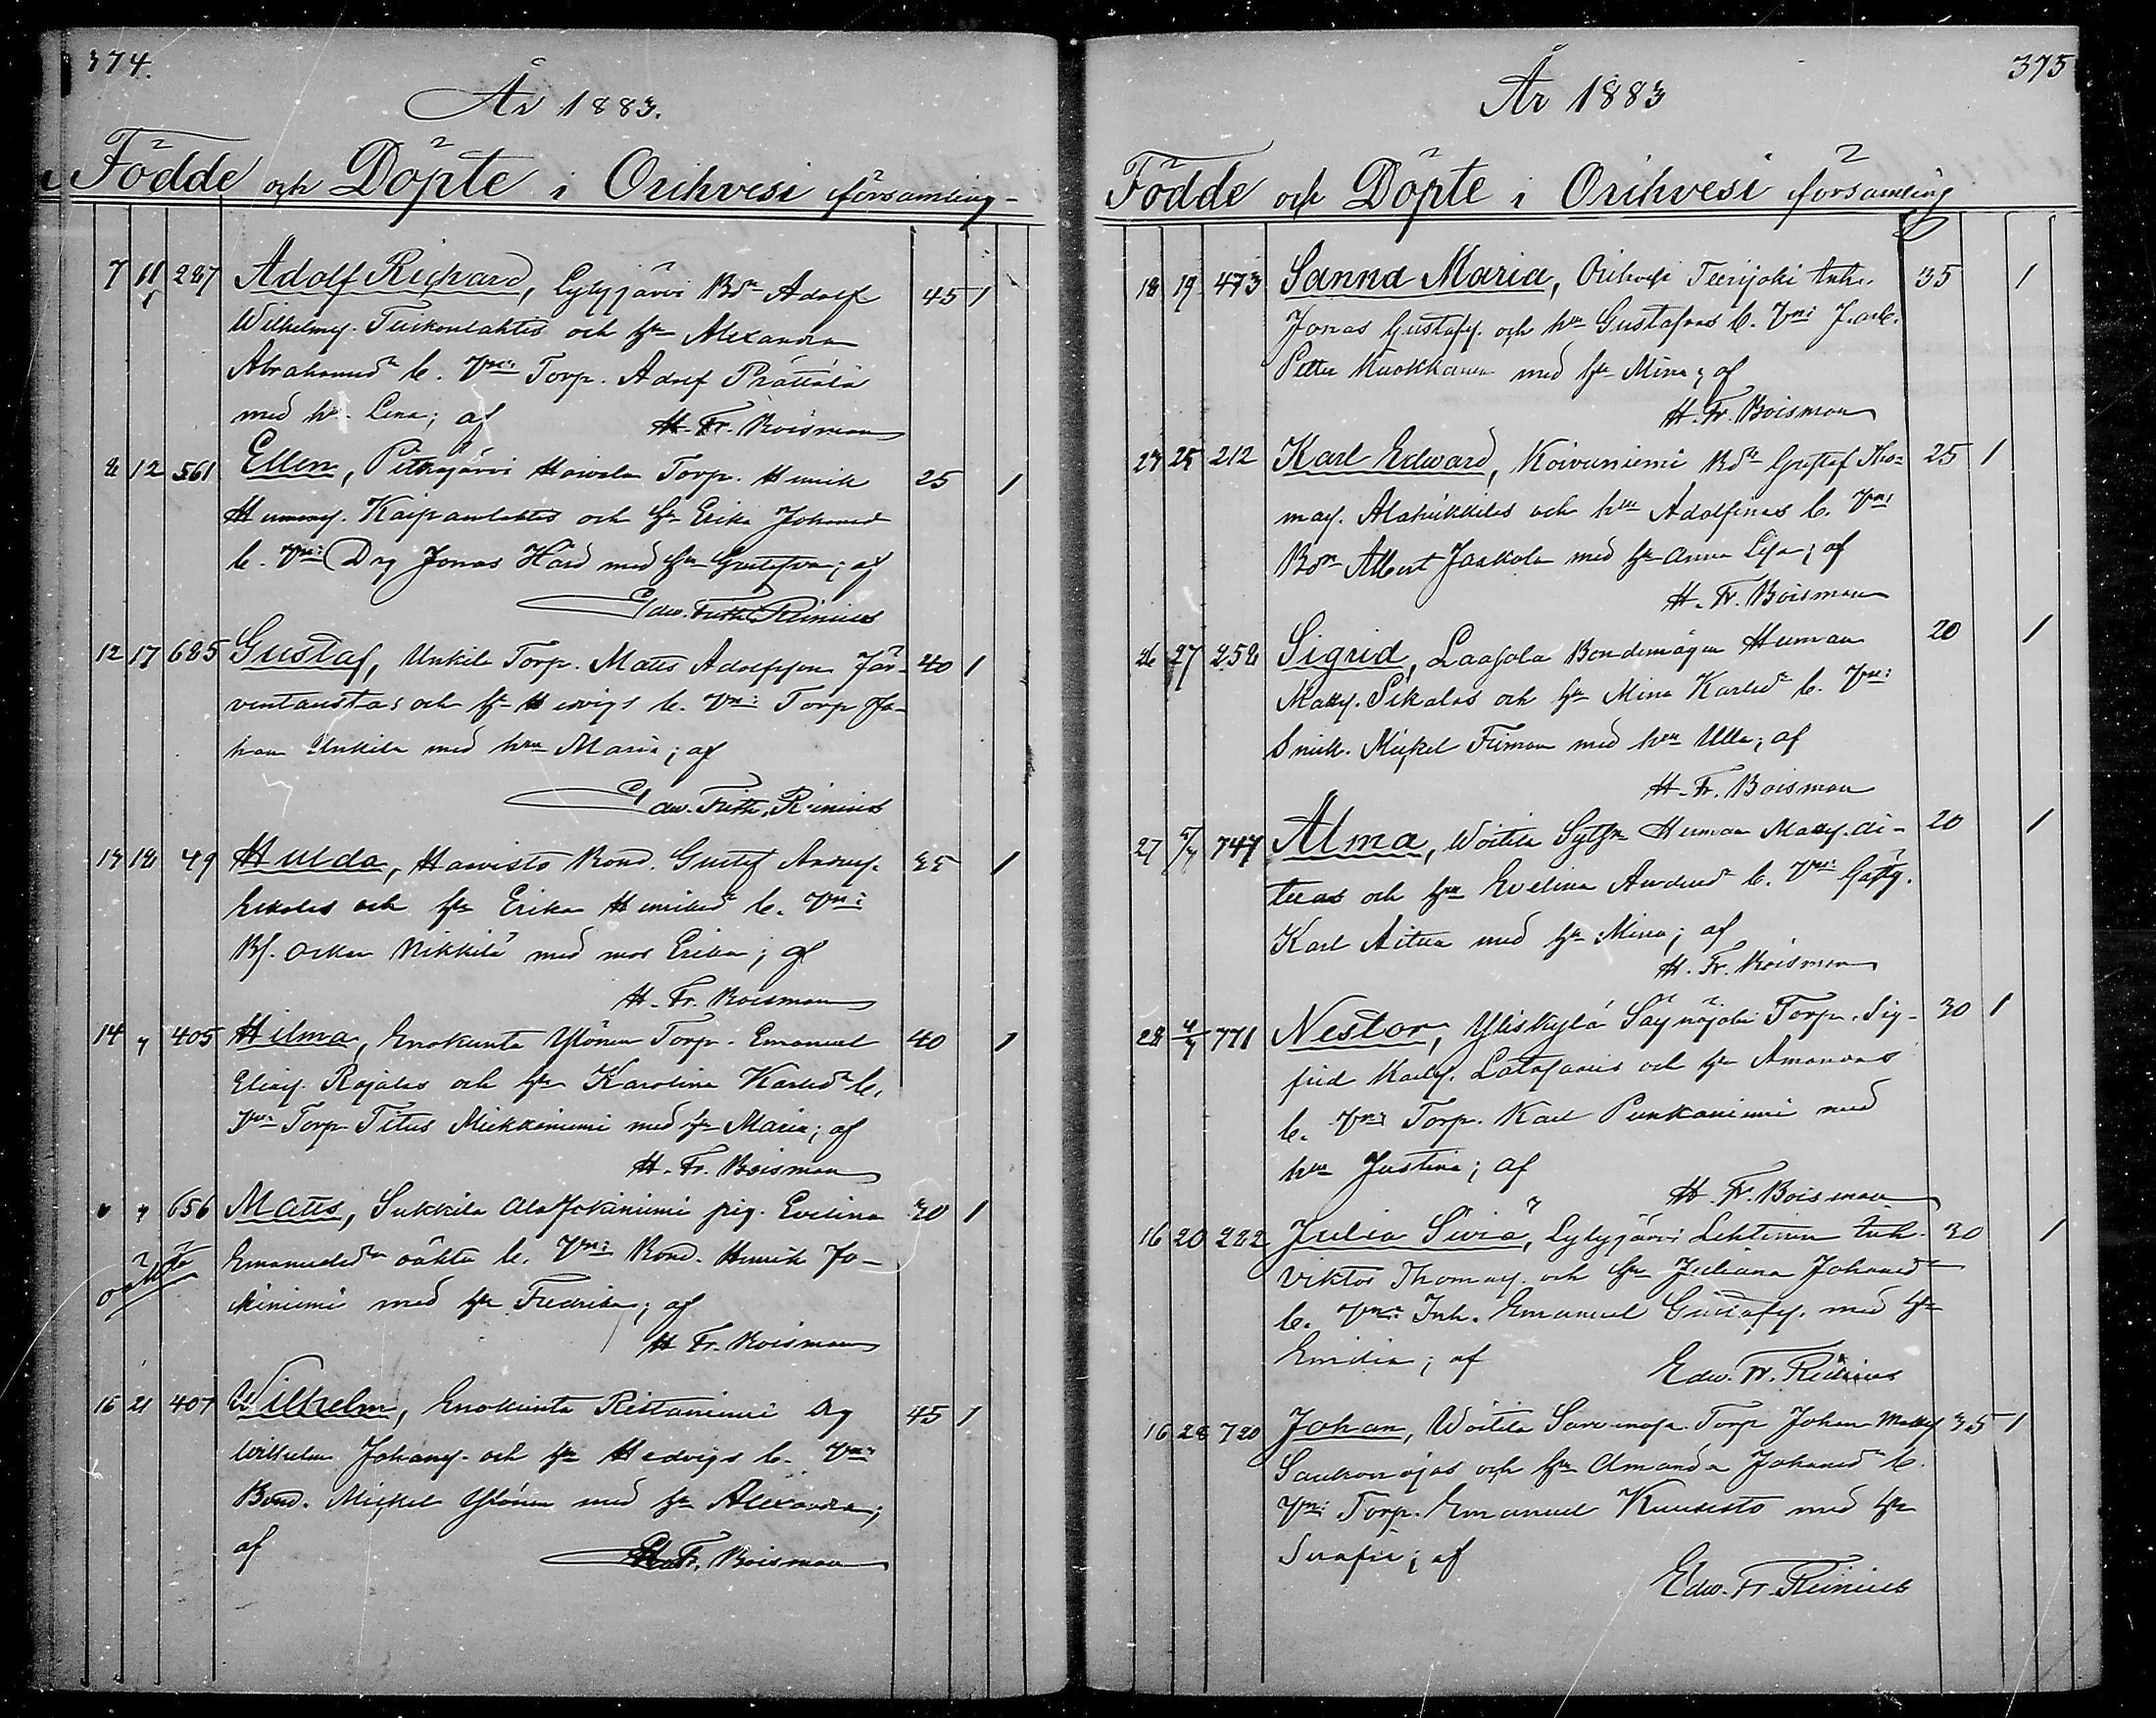 374.
År 1883.
Födde och Döpte i Orihvesi församling
7 11 287 Adolf Richard, Lylyjärvi Bdn Adolf 45 1
Wilhelmss. och hu Alexandra
Abrahamsd. b. Vn: Torp. Adolf Prättälä
med hu Lena; af H. Fr. Boisman
8 12 561 Ellen, Pitkäjärvi Torp. Henrik 25 1
Kaipanlahtis och hu Erika Johansd
b. Vn: Drg Jonas Hård med hu Gustafva; af
Edw. Frith. Reinius
12 17 685 Gustaf, Unkila Torp. Matts Adolfsson Jär- 40 1
ventaustas och hu Hedvigs b. Vn: Torp Jo-
han Unkila med hu Maria; af
Edw. Frith. Reinius
18 49 Hulda, Haavisto Bond. Gustaf Anderss. 1
Erkolas och hu Erika Henriksd b. Vn:
Bs. Oskar Nikkilä med mor Erika; af
H. Fr. Boisman
14 " 405 Hilma, Enokunta Ylönen Torp. Emanuel 40 1
Eliass. Rajalas och hu Karolina Karlsd b.
Vn: Torp Titus Mickkiniemi med hu Maria; af
H. Fr. Boisman
" " 656 Matts, Sukkila Ala Jokiniemi pig. Evelina 1
Emanuelsd. oäkta b. Vn: Bond. Henrik Jo-
kiniemi med hu Fredrika; af
H. Fr. Boisman
16 21 407 Wilhelm, Enokunta Ristaniemi drg 45 1
Wilhelm Johanss. och hu Hedvigs b. Vn:
Bond. Mickel Ylönen med hu Alexandra;
af H. Fr. Boisman
375
År 1883
Födde och Döpte i Orihvesi församling
18 19 473 Sanna Maria, Orihvesi Teerijoki Inh. 35 1
Jonas Gustafss. och hu Gustafvas b. Vn:
Petter Kuokkanen med hu Mina; af
H. Fr. Boisman
25 212 Karl Edward, Koivuniemi Bdn Gustaf Tho- 25 1
mass. Alahukkilas och hu Adolfinas b. Vn:
Bdn Albert Jaakola med hu Anna Lisa; af
H. Fr. Boisman
26 27 258 Sigrid, Laasola Bondemågen Herman 20 1
Mattss. Sikalas och hu Mina Karlsd b. Vn:
Smeh. Mickel Friman med hu Ulla; af
H. Fr. Boisman
27 747 Alma, Woitila Herman Mattss. Ai- 20 1
tuas och hu Evelina Andersd b. Vn:
Karl Aitua med hu Mina; af
H. Fr. Boisman
28 771 Nestor, Yliskylä Säynäjoki Torp. Sig- 30 1
frid Karlss. Latosaaris och hu Amandas
b. Vn: Torp. Karl Punkaniemi med
hu Justina; af
H. Fr. Boisman
16 20 222 Julia Siviä, Lylyjärvi Lehtinen Inh. 30 1
Viktor Thomass. och hu Juliana Johansd
b. Vn: Inh. Emanuel Gustafss. med hu
Emilia; af
Edw. Fr. Reinius
16 28 720 Johan, Woitila Torp Johan Mattss 35 1
Saukonojas och hu Amanda Johansd b.
Vn: Torp. Emanuel Kuusisto med hu
Serafia; af
Edw. Fr. Reinius